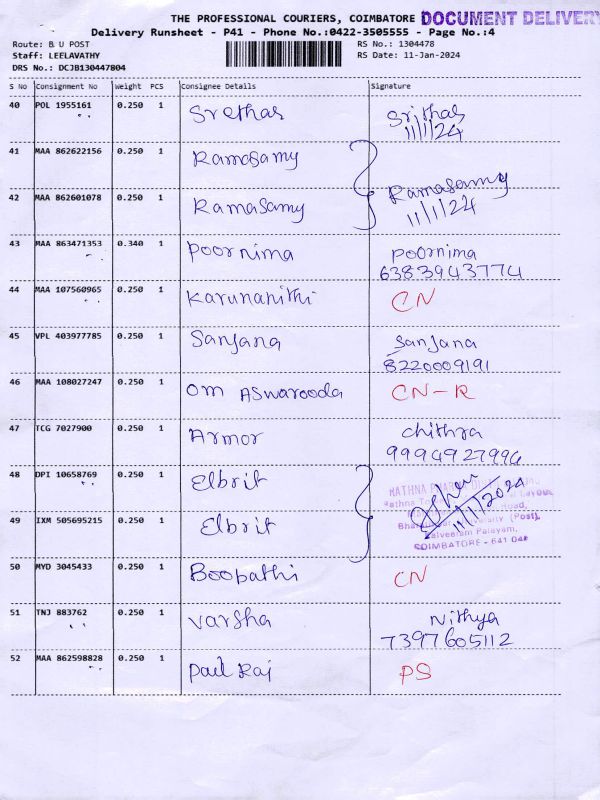 THE PROFESSIONAL COURIERS, COIMBATORE DOCUMENT DELIVERY
Delivery Runsheet - P41 - Phone No.:0422-3505555 - Page No.:4
Route: B U POST
Staff: LEELAVATHY
DRS No.: DCJB130447804
RS No.: 1304478
RS Date: 11-Jan-2024
S No Consignment No Weight PCS Consignee Details Signature
40 POL 1955161 0.250 1 Srethar Srithar
11/1/24
41 MAA 862622156 0.250 1 Ramasamy
42 MAA 862601078 0.250 1 Ramasamy Ramasamy
11/1/24
43 MAA 863471353 0.340 1 Poornima Poornima
6383943774
44 MAA 107560965 0.250 1 Karunanithi CN
45 VPL 403977785 0.250 1 Sanjana Sanjana
8220009191
46 MAA 108027247 0.250 1 Om Aswarooda CN-R
47 TCG 7027900 0.250 1 Armor Chithra
9994927994
48 DPI 10658769 0.250 1 Elbrit
49 IXM 505695215 0.250 1 Elbrit 11/1/2024
RATHNA
Road,
(Post),
COIMBATORE - 641 046
50 MYD 3045433 0.250 1 Boopathi CN
51 TNJ 883762 0.250 1 Varsha Nithya
7397605112
52 MAA 862598828 0.250 1 Paul Raj PS